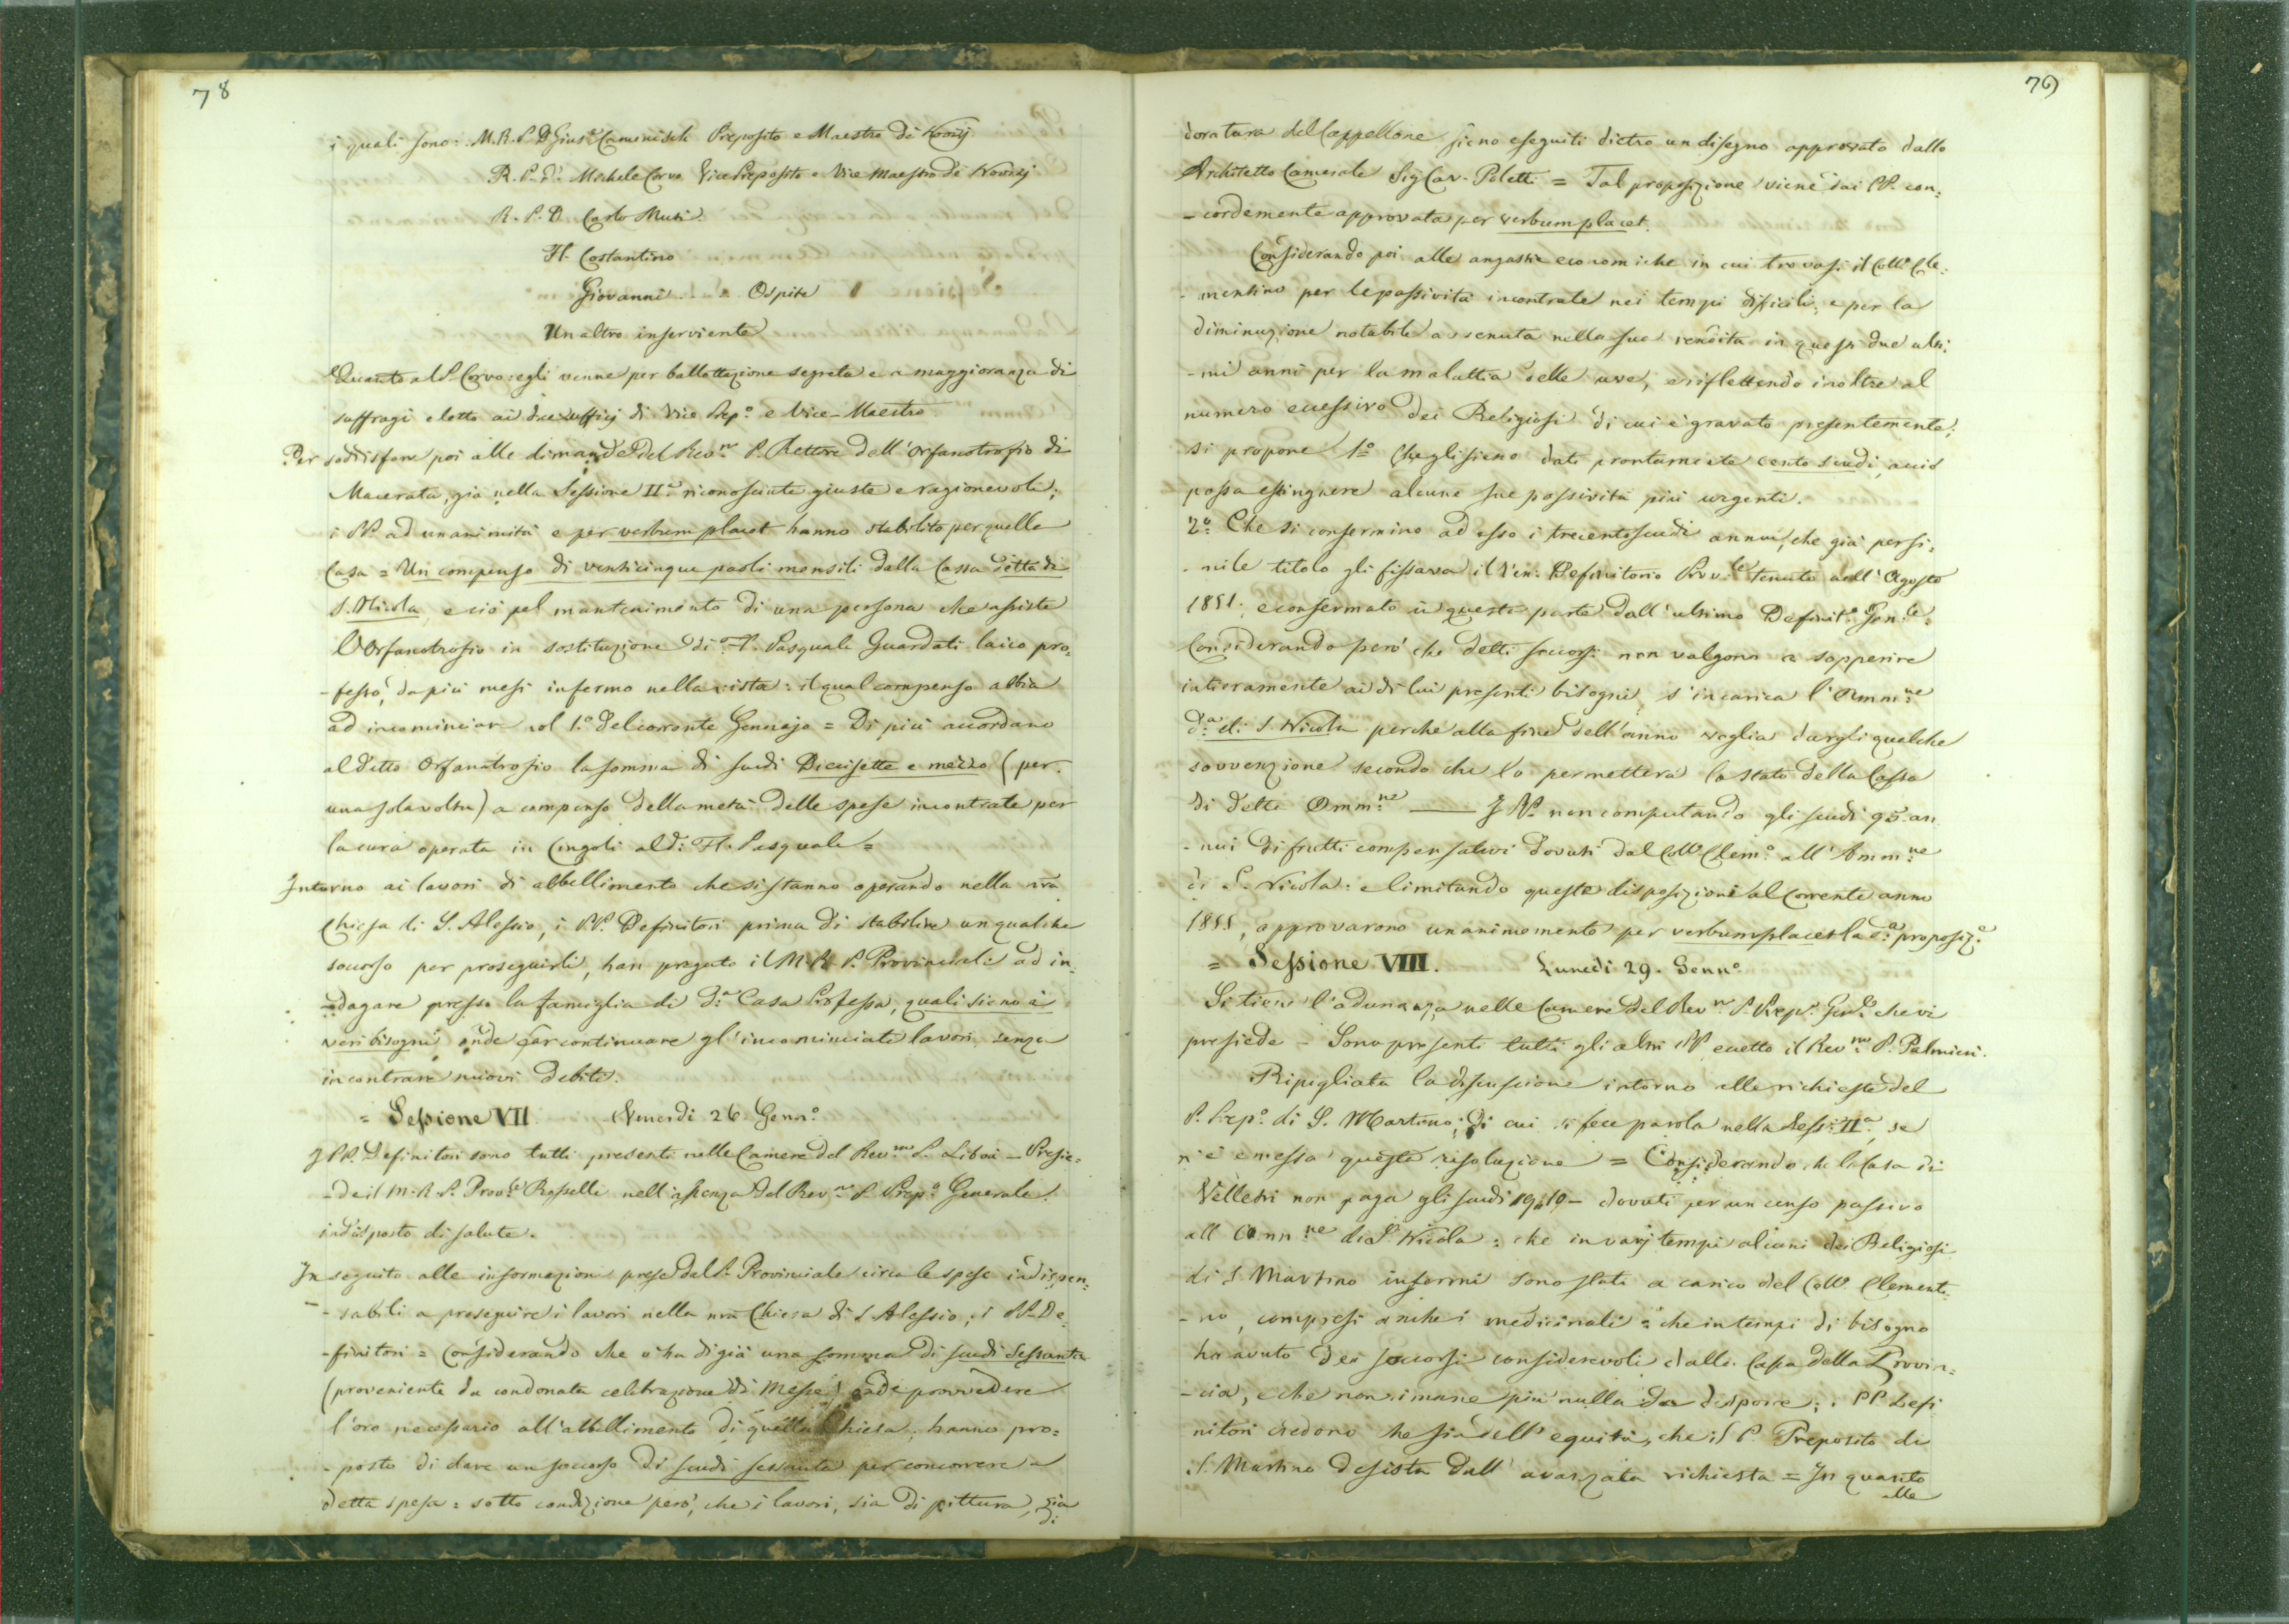 78
i quali sono: M.R.P.D. Gius.e Camenisch Preposito e Maestro dè Novizj
R. P. D. Michele Corvo Vice Preposito e Vice Maestro dè Novizj
R. P. D. Carlo Muti
Fl. Costantino
Giovanni .... Ospite
Un altro inserviente
Quanto al P. Corvo: egli venne per ballottazione segreta e a maggioranza di
suffragi eletto ai due ufficj di Vice Prep.o e Vice-Maestro.
Per soddisfare poi alle dimande del Rev.mo P. Rettore dell'Orfanotrofio di
Macerata, già nella Sessione II.a riconosciute giuste e ragionevoli;
i PP. ad unanimità e per verbum placet hanno stabilito per quella
Casa = Un compenso di venticinque paoli mensili dalla Cassa detta di
S. Nicola, e ciò pel mantenimento di una persona che assista
l'Orfanotrofio in sostituzione di Fl. Pasquale Guardati laico pro=
-fesso, da più mesi infermo nella vista: il qual compenso abbia
ad incominciare col 1.o del corrente Gennajo = Di più accordano
al detto Orfanotrofio la somma di scudi Diecisette e mezzo (per
una sola volta) a compenso della metà delle spese incontrate per
la cura operata in Cingoli al d.o Fl. Pasquale =
Intorno ai lavori di abbellimento che si stanno operando nella nra
Chiesa di S. Alessio, i PP. Definitori prima di stabilire un qualche
soccorso per proseguirli, han pregato il M. R. P. Provinciale ad in=
-dagare presso la famiglia di d.a Casa Professa, quali sieno i
veri bisogni onde far continuare gl'incominciati lavori, senza
incontrare nuovi debiti.
= Sessione VII. Venerdì 26 Genn.o
I PP. Definitori sono tutti presenti nelle Camere del Rev.mo P. Libois - Presie=
-de il M. R. P. Prov.le Rosselli nell'assenza del Rev.mo P. Prep.o Generale
indisposto di salute.
In seguito alle informazioni prese dal P. Provinciale circa le spese indispen=
-sabili a proseguire i lavori nella nra Chiesa di S. Alessio, i PP. De=
-finitori = Considerando che v'ha di già una somma di scudi sessanta
(proveniente da condonata celebrazione di Messe) onde provvedere
l'oro necessario all'abbellimento di quella Chiesa, hanno pro=
-posto di dare un soccorso di scudi sessanta per concorrere a
detta spesa = sotto condizione però, che i lavori, sia di pittura, sia
di
79
doratura del Cappellone sieno eseguiti dietro un disegno approvato dallo
Architetto Camerale Sig Cav. Poletti = Tal proposizione viene dai PP. con=
-cordemente approvata per verbum placet.
Considerando poi alle angustie economiche in cui trovasi il Coll.o Cle=
-mentino per le passività incontrate nei tempi difficili, e per la
diminuzione notabile avvenuta nella sua rendita in questi due ulti=
-mi anni per la malattia delle uve, e riflettendo inoltre al
numero eccessivo dei Religiosi di cui è gravato presentemente;
si propone 1.o Che gli sieno dati prontamente cento scudi, acciò
possa estinguere alcune sue passività più urgenti.
2.o Che si confermino ad esso i trecento scudi annui, che già per si=
-mile titolo gli fissava il Ven. Definitorio Prov.le tenuto nell'Agosto
1851, e confermato in questa parte dall'ultimo Definit.o Gen.le
Considerando però che detti soccorsi non valgono a sopperire
intieramente ai di lui presenti bisogni, s'incarica l'Amm.ne
d.a di S. Nicola perchè alla fine dell'anno voglia dargli qualche
sovvenzione secondo che lo permetterà lo stato della Cassa
di detta Amm.ne —— I PP. non computando gli scudi 95. an
-nui di frutti compensativi dovuti dal Coll.o Clem.o all'Amm.ne
di S. Nicola: e limitando queste disposizioni al corrente anno
1855, approvarono unanimemente per verbum placet la d.a proposiz.e
= Sessione VIII. Lunedì 29. Genn.o
Si tiene l'adunanza nelle Camere del Rev.mo P. Prep.o Gen.le che vi
presiede - Sono presenti tutti gli altri PP. eccetto il Rev.mo P. Palmieri.
Ripigliata la discussione intorno alle richieste del
P. Prep.o di S. Martino; di cui si fece parola nella Sess. II.a, se
n'è emessa questa risoluzione = Considerando che la Casa di
Velletri non paga gli scudi 19,10 - dovuti per un censo passivo
all'Amm.ne di S. Nicola: che in varj tempi alcuni dei Religiosi
di S. Martino infermi sono stati a carico del Coll.o Clementi=
-no, compresi anche i medicinali: che in tempi di bisogno
ha avuto dei soccorsi considerevoli dalla Cassa della Provin=
-cia, e che non rimane più nulla da disporre; i PP. Defi
nitori credono che sia dell'equità, che il P. Preposito di
S. Martino desista dall'avanzata richiesta = In quanto
alle